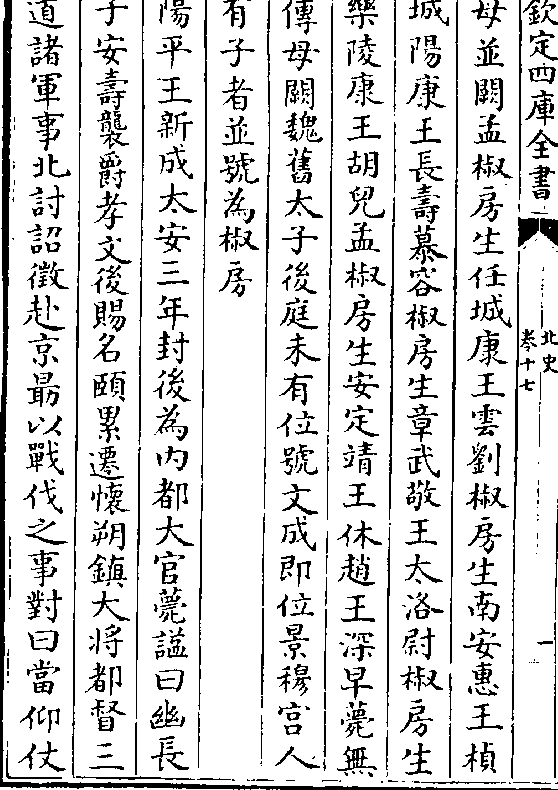 欽定四庫全書
北史
卷十七
一
母並闕孟椒房生任城康王雲劉椒房生南安惠王楨
城陽康王長壽慕容椒房生章武敬王太洛尉椒房生
樂陵康王胡兒孟椒房生安定靖王休趙王深早薨無
傳母闕魏舊太子後庭未有位號文成即位景穆宮人
有子者並號為椒房
陽平王新成太安三年封後為内都大官薨諡曰幽長
子安壽襲爵孝文後賜名頤累遷懷朔鎮大將都督三
道諸軍事北討詔徵赴京朂以戰伐之事對曰當仰仗